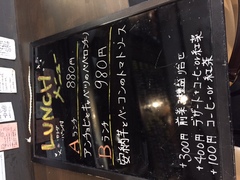 LUNCH
メニュー
Aランチ 880円
アンチョビとキャベツのペペロンチーノ
Bランチ 980円
安納芋とベーコンのトマトソース
+300円 前菜3種盛り合せ
+400円 デザート+コーヒーor紅茶
+100円 コーヒーor紅茶